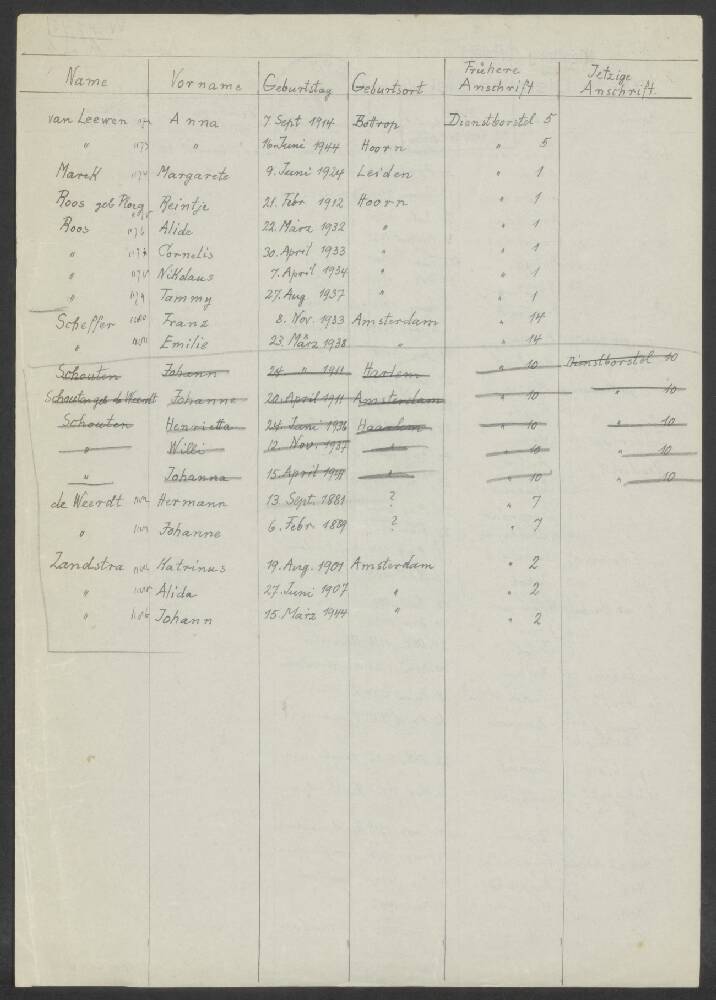 Name Vorname Geburtstag Geburtsort Frühere Anschrift Jetzige Anschrift
van Leewen Anna 7. Sept 1914 Bottrop Dienstborstel 5
" 1173 " 16. Juni 1944 Hoorn " 5
Marek 1174 Margarete 9. Juni 1924 Leiden " 1
Roos geb Ploeg Reintje 21. Febr 1912 Hoorn " 1
Roos 1176 Alide 22. März 1932 " " 1
" Cornelis 30. April 1933 " " 1
" Nikolaus 7. April 1934 " " 1
" 1179 Tammy 27. Aug 1937 " " 1
Scheffer 1180 Franz 8. Nov. 1933 Amsterdam " 14
" Emilie 23. März 1938 " " 14
Schouten Johann 24. " 1911 Harlem " 10 Dienstborstel 10
Schouten geb de Weerdt Johanne 20. April 1911 Amsterdam " 10 " 10
Schouten Henrietta 24. Juni 1936 Haarlem " 10 " 10
" Willi 12. Nov. 1937 " " 10 " 10
" Johanna 15. April " " 10 " 10
de Weerdt Hermann 13. Sept. 1881 ? " 7
" Johanne 6. Febr 1889 ? " 7
Zandstra Katrinus 19. Aug. 1901 Amsterdam " 2
" Alida 27. Juni 1907 " " 2
" Johann 15. März 1944 " " 2